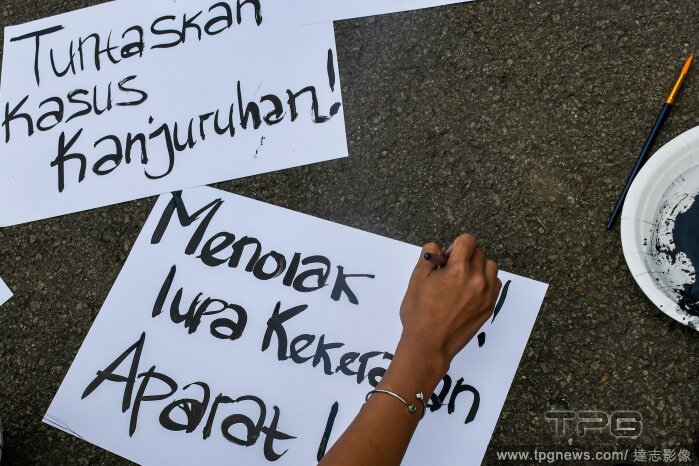 Tuntaskan
Kasus
Kanjuruhan!
Menolak !
lupa Kekerasan
Aparat !
TPG
www.tpgnews.com/ 達志影像